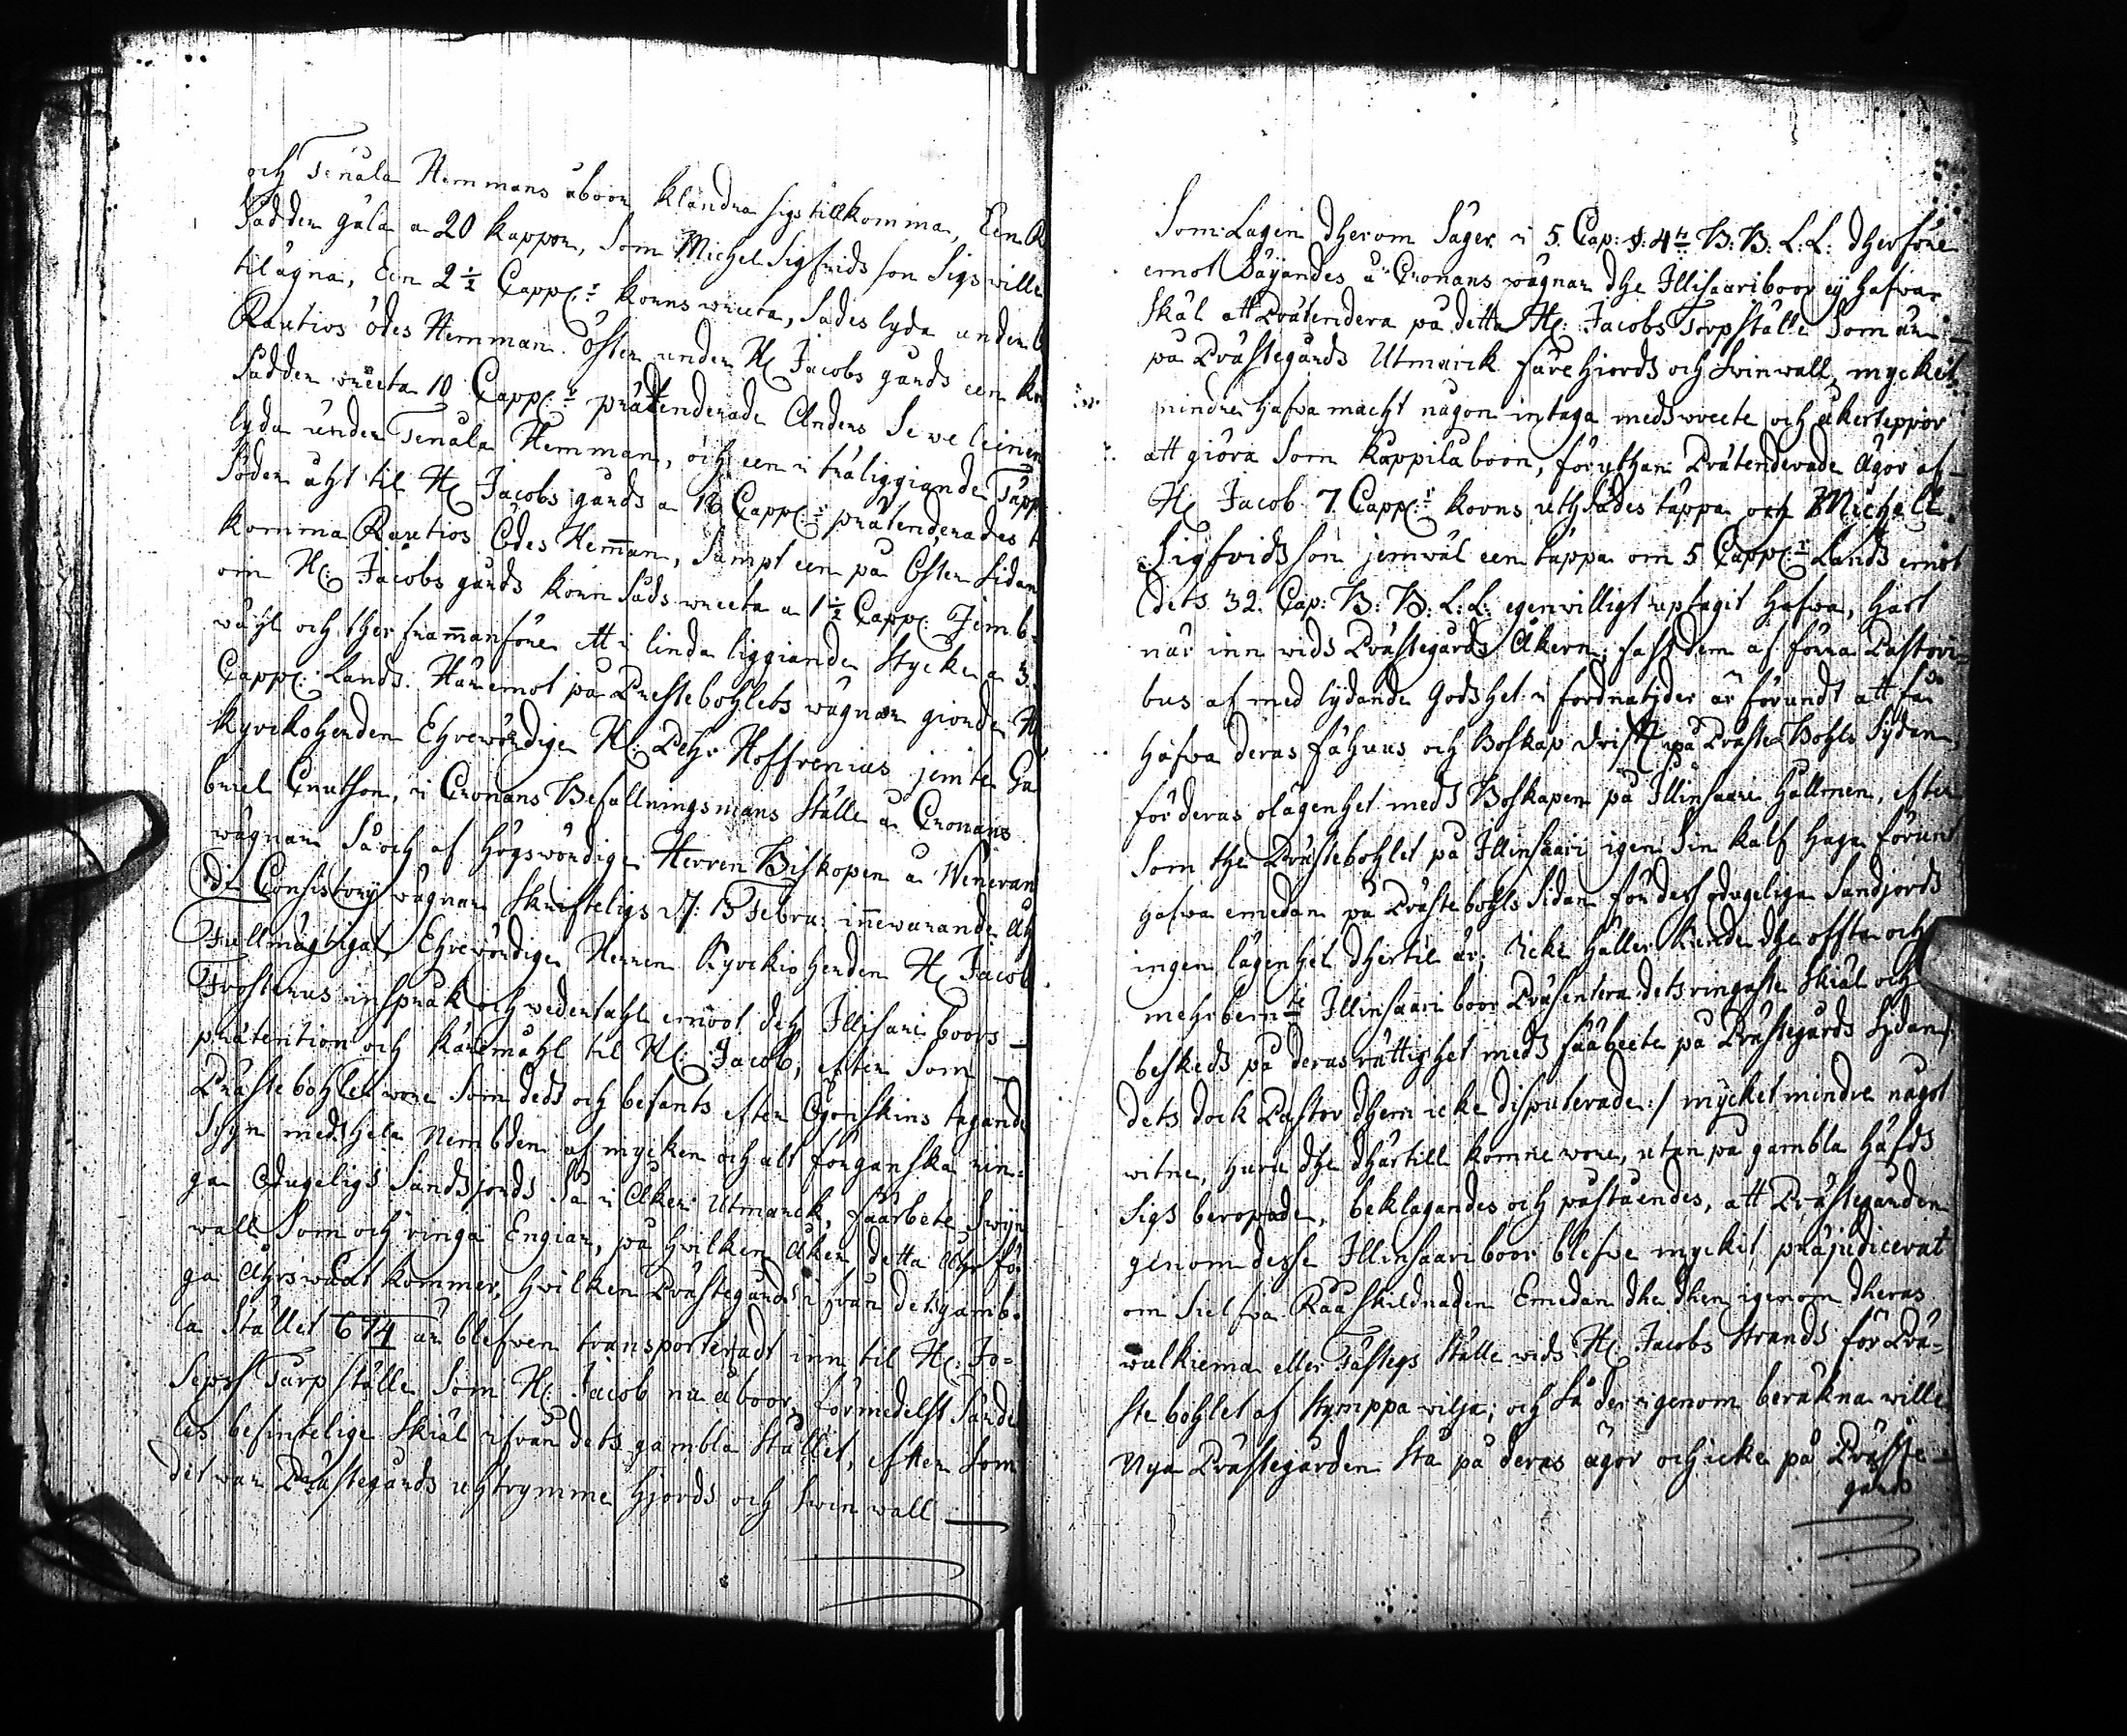 och Tenala Hemmans åboor klandra sigs tillkomma, Een
Sädder gála a 20 kappor, som Michel Sigfrids son sigs wille
tilägna, Een 2 1/2 Capp:r korns wreeta, sades lyda under
Rautios ödes Hemman. öster under H: Jacobs gårds een
Sädder wreeta 10 Capp:r prætenderade Anders Seweleinen
lyda under Tenala Hemman, och een i träliggiande Täpp
Söder åht til H: Jacobs gårds a 16 Capp:r prætenderades
komma Rautios Ödes Hem̄an, sampt een på Öster sidan
om H: Jacobs gårds korn Säds wreeta a 1 1/2 Capp: Jemb
wähl och ther fram̄anföre ett i linda liggiande stycke a 3
Capp: Lands. Häremot på Prestebohlets wägnar giorde H
kyrckoherden Ehrewördige H: Pehr Hoffrenius jemte Ga
briel Cnutson, i Cronans Befallningsmans ställe å Cronans
wägnar Så och af högwördige Herren Biskopen å Veneran
di Consistorij wägnar skrifteligs d: 13 Febru: in̄ewarande Åhr
Fullmägtigat Ehrewördige Herren Kyrckioherden H: Jacob
Frosterus inspråk och vedertahl emoot deh Illisari boors
prætention och käremåhl til H: Jacob, efter som
Prästebohlet wore som deds och befants efter Ögonskins tagande
Syn meds hela Nembden af mycken och alt för ganska rin-
ga Odugeligs Sandsjords Så i Åker Utmarck, fäärbete Swijn
wall som och ringa Engiar, på hwilken Åker detta Åhr för
ga Åhrswäxt kommer, hwilken Prästegårds ifrån dets gamb-
la Stället 674 är blefwen transporteradt inn til H: Jo-
seps Torpställe som H: Jacob nu åboor, förmedelst sände
les befintelige skiäl ifrån dets gambla stället, efter som
det war Prästegårds uhtrymme hjords och Swin wall
Som Lagen dherom Säger i 5. Cap: §: 4 B: B: L: L: dherföre
emot Säijandes å Cronans wägnar dhe Illisaariboor eij hafwar
skäl att Prætendera på detta H: Jacobs Torpställe som är
på Prästegårds Utmarck färe hiords och Swinwall, mycket
mindre hafwa macht någon intaga meds wreete och åkerteppor
att giöra som kappilaboon, föruthan Prætenderade ägor af
H: Jacob 7 Capp:r korns uthsädes täppa och Michell
Sigfridsson jemwäl een täppa om 5 Capp:r Lands emot
dets 32. Cap: B: B: L: L: egenwilligt uptagit hafwa, hart
när inn wids Prästegårds Åkern, fast dem af förra Pastori-
bus af med lydande Godshet i fordnatijder är förundt att få
hafwa deras fähuus och Boskap drifft på Präste Bohls sydan,
för deras olägenhet meds Boskapen på Illinsaari Hållmen, efter
som the Prästebohlet på Illinsaari igen Sin kalf haga förunt
hafwa emedan på Prästebohls Sidan för dess odugeliga Sandjords
ingen lägenhet dhertil är; Icke häller kunde dhe offta och
mehrbem:te Illinsaari boor Præsentera dets ringaste skiäl och
beskeds på deras rättighet meds fääbeete på Prästegårds sydan,
dets dock Pastor dhem icke disputerade :/ mycket mindre något
witne, huru dhe dhärtill komne wore, utan på gambla häfds
sigs beropade, beklagandes och påståendes, att Prästegården
genom desse Illinsaariboor blefwe myckit præjudicerat
om sielfwa Råå skildnaden Emedan dhe dhen igenom dheras
walkiema eller Fästegs ställe wids H: Jacobs strands för Prä-
stebohlet af stymppa wilja; och så der igenom beräkna wille
Nya Prästegården stå på deras ägor och icke på Präste-
gårds